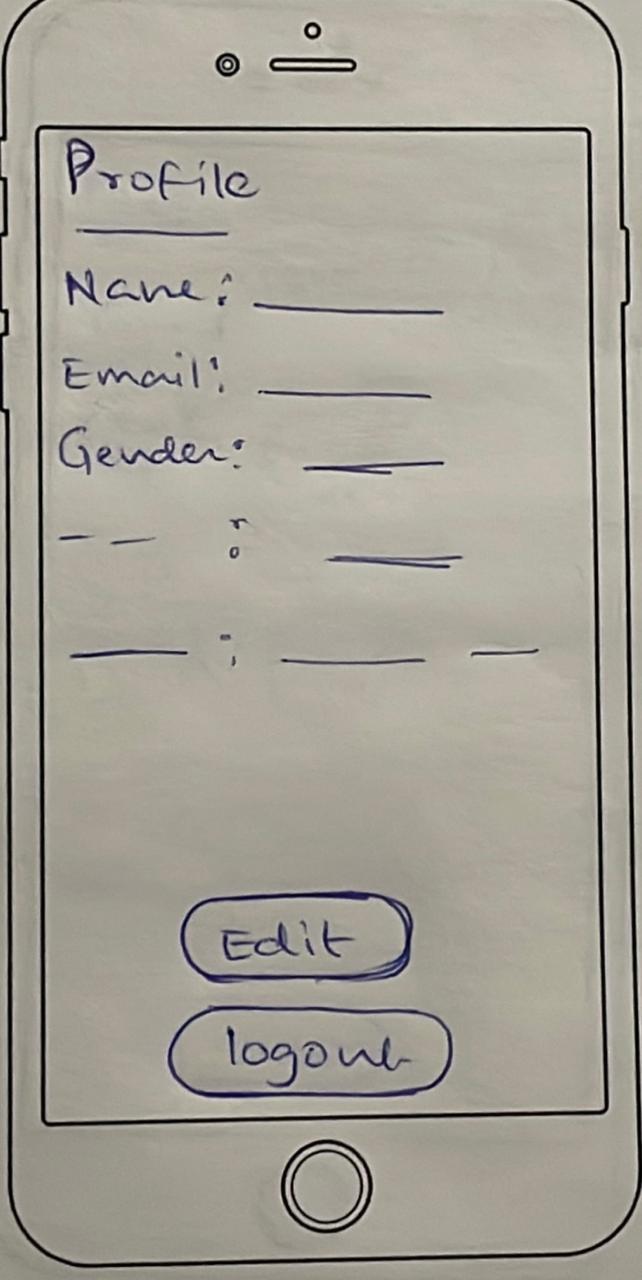 Profile
Name:
Email:
Gender:
Edit
logout